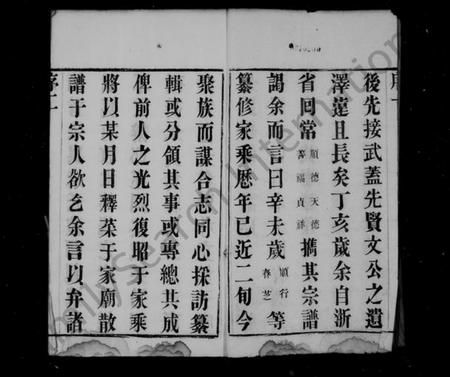 序一
後先接武蓋先賢文公之遺
澤遠且長矣丁亥歲余自浙
省回常 順德天德 壽福貞祥 攜其宗譜
謁余而言曰辛未歲 順行 春芝 等
纂修家乘歷年已近二旬今
聚族而謀合志同心採訪纂
輯或分領其事或專總其成
俾前人之光烈復昭于家乘
將以某月日釋菜于家廟散
譜于宗人欲乞余言以弁諸
序二
FamilySearch International